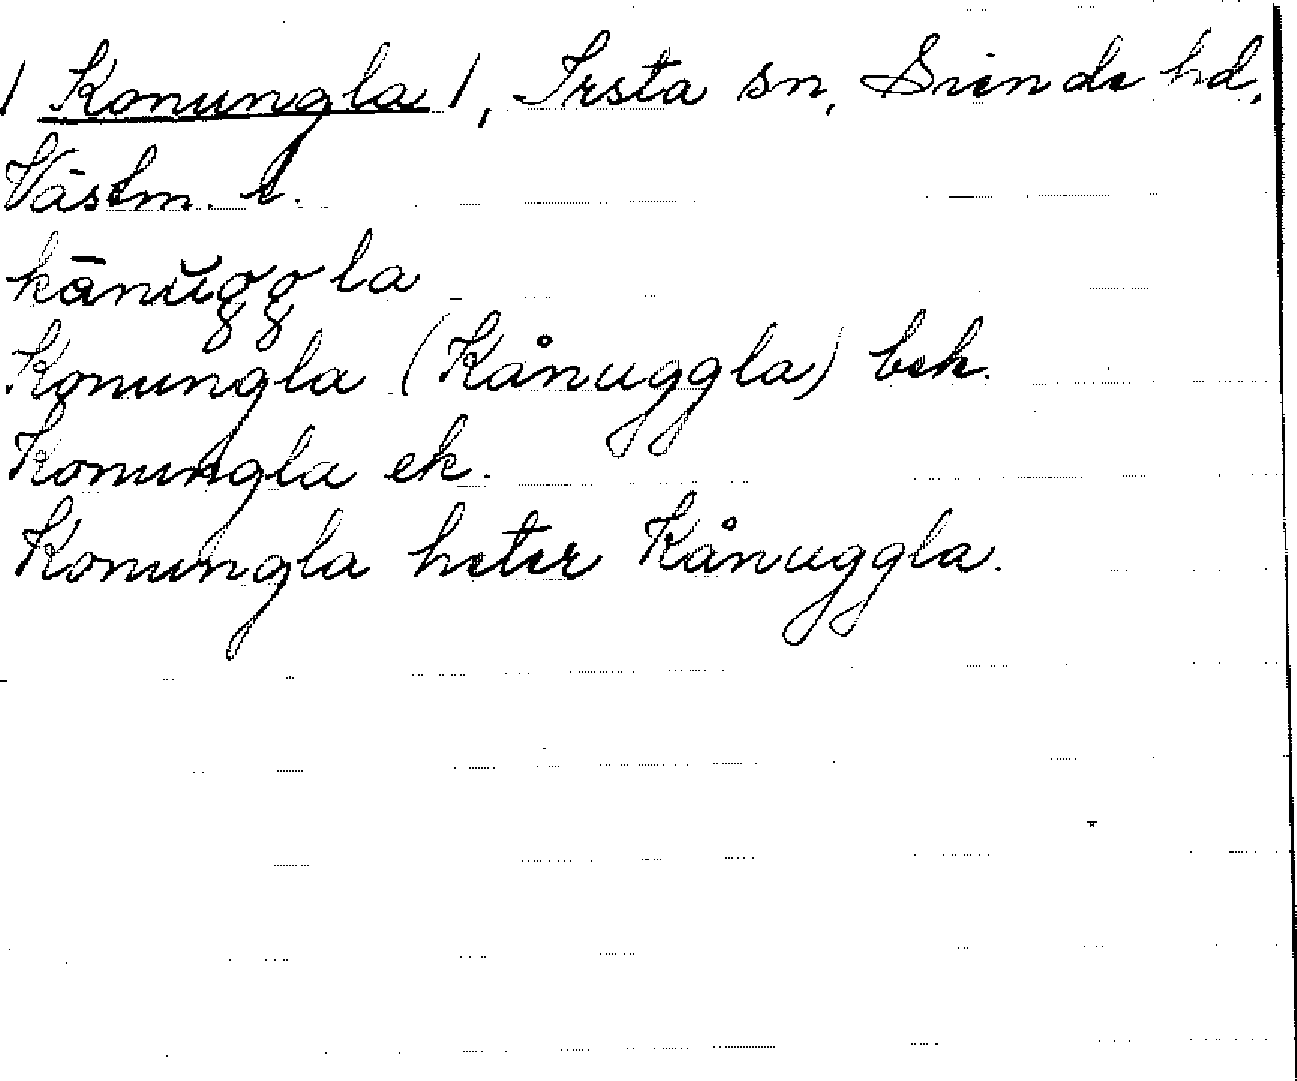 / Konungla /, Irsta sn, Siende hd,
Västm. l.
kānŭggla
Konungla (Kånuggla) bek.
Konungla ek.
Konungla heter Kånuggla.